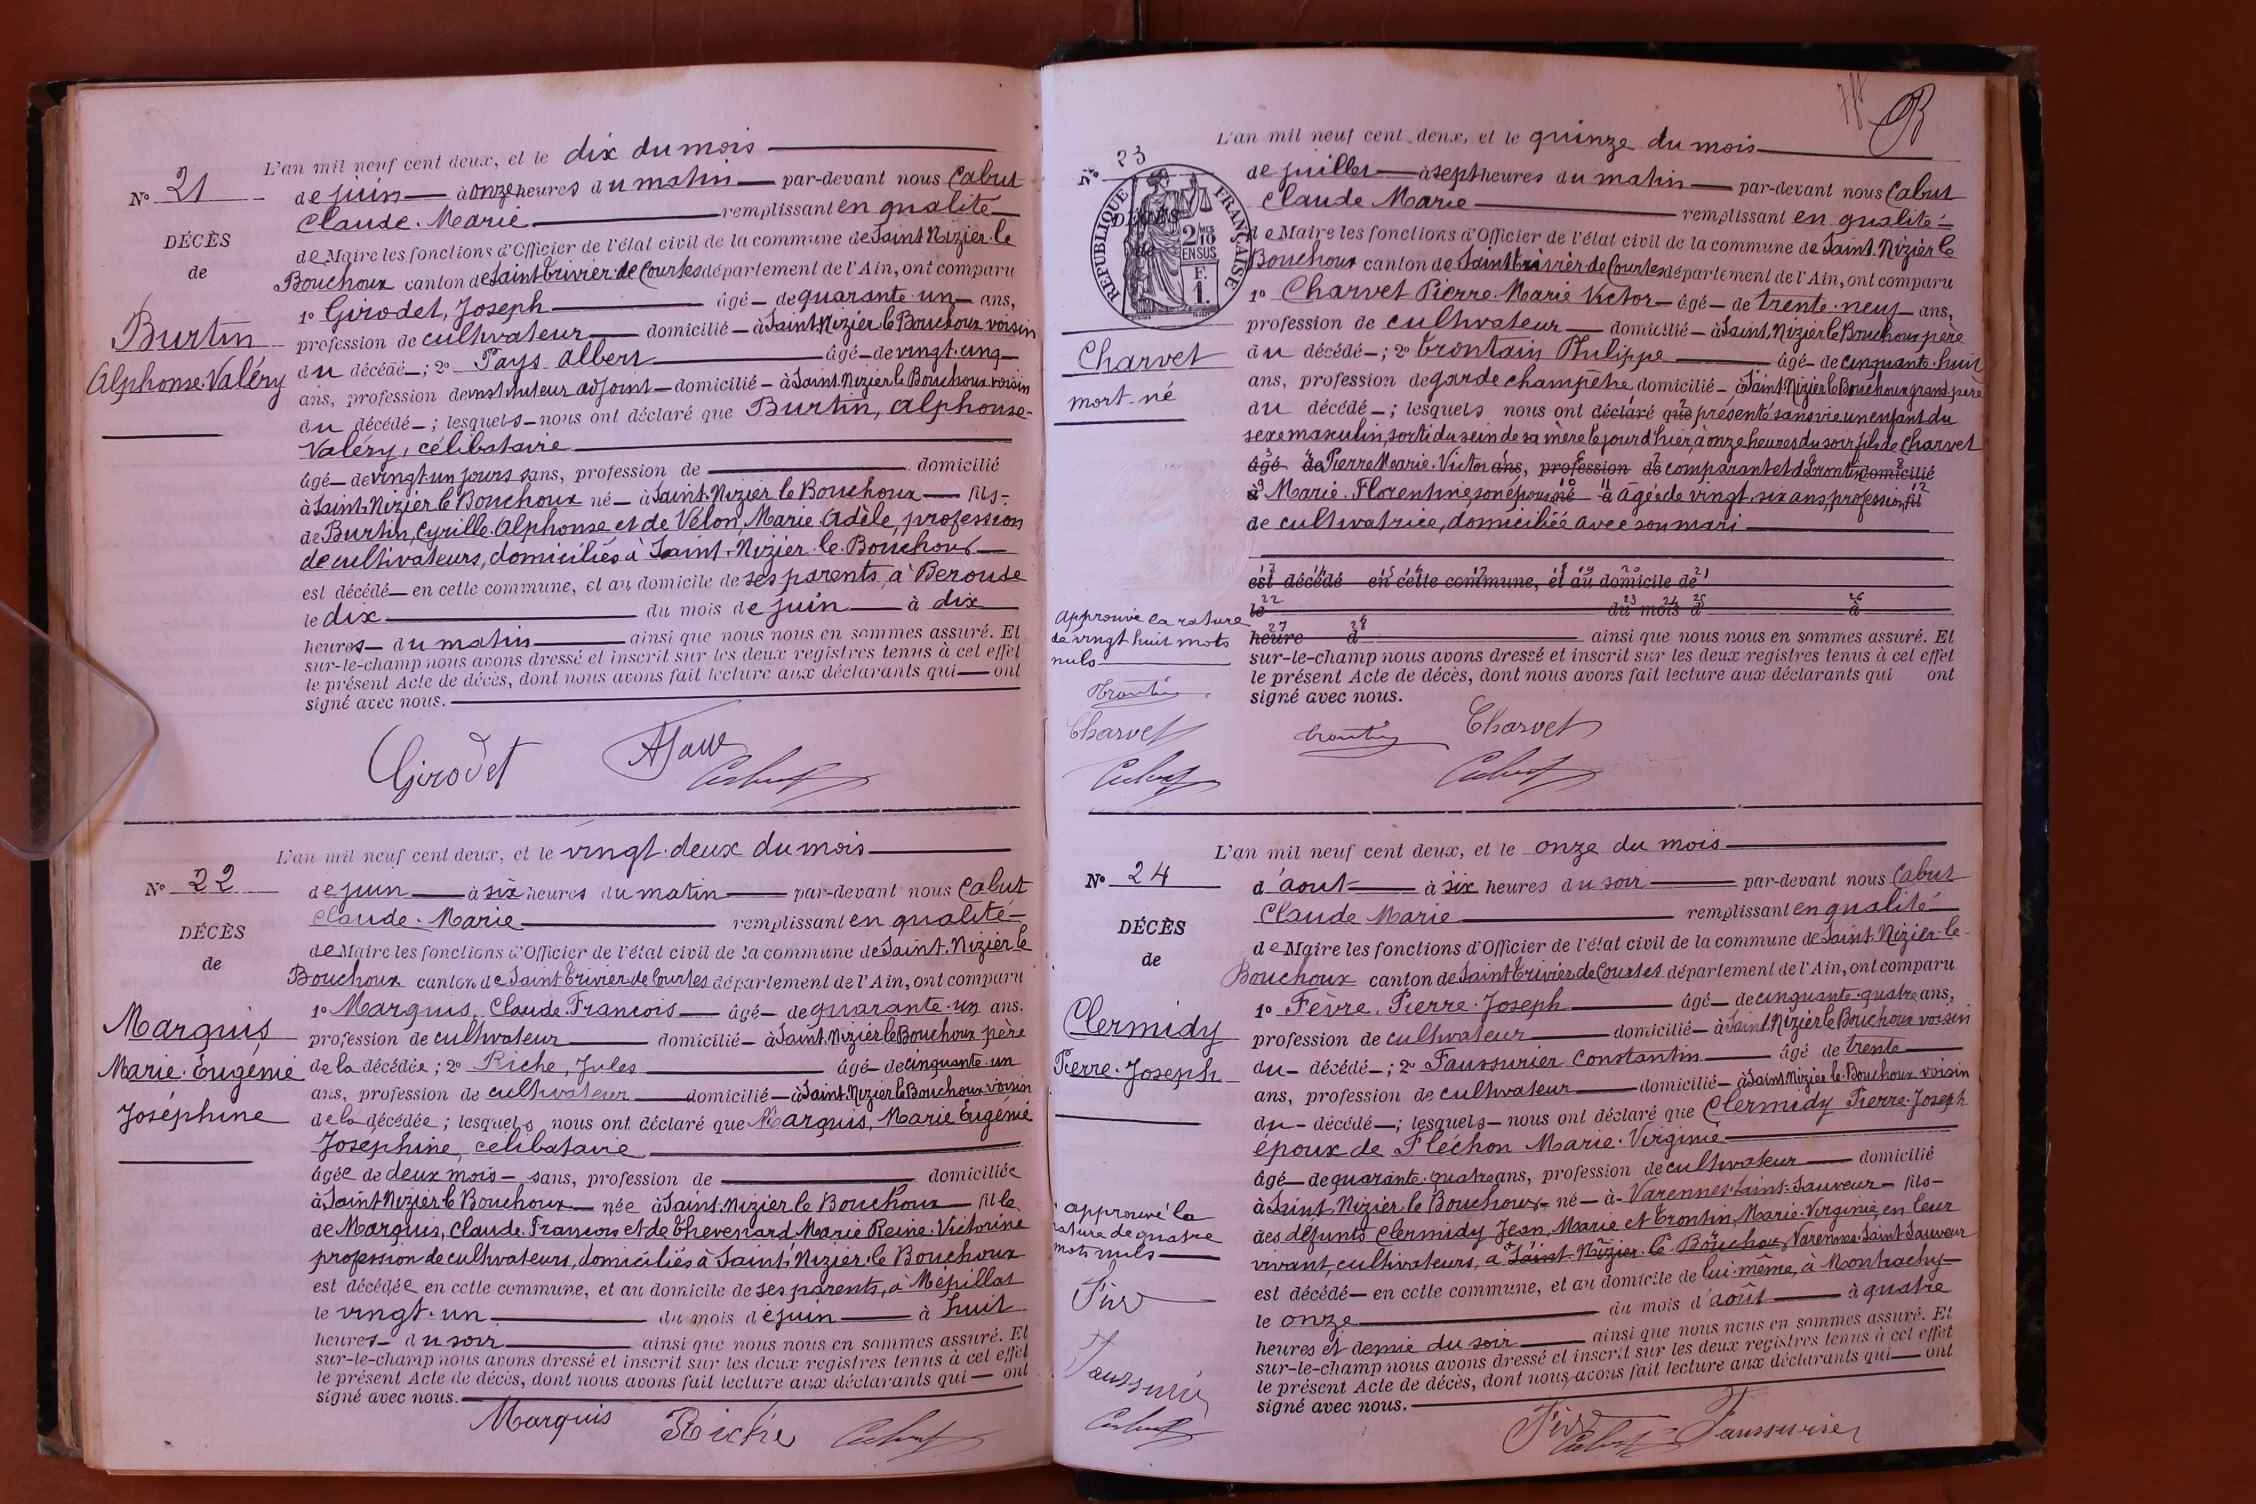 L'an mil neuf cent deux, et le dix du mois
N° 21
de juin à onze heures du matin par-devant nous Cabut
Claude-Marie remplissant en qualité
DÉCÈS
de Maire les fonctions d'Officier de l'état civil de la commune de Saint-Nizier-le
de
Bouchoux canton de Saint Trivier-de-Courtes département de l'Ain, ont comparu
1° Girodet, Joseph âgé de quarante-un ans,
Burtin
profession de cultivateur domicilié à Saint-Nizier-le-Bouchoux voisin
du décédé ; 2° Pays Albert âgé de vingt-cinq
Alphonse-Valéry
ans, profession de instituteur adjoint domicilié à Saint-Nizier le Bouchoux voisin
du décédé ; lesquels nous ont déclaré que Burtin, Alphonse-
Valéry, célibataire
âgé de vingt-un jours sans, profession de domicilié
à Saint-Nizier le Bouchoux né à Saint-Nizier le Bouchoux fils
de Burtin, Cyrille-Alphonse et de Vélon, Marie-Adèle, profession
de cultivateurs, domiciliés à Saint-Nizier-le-Bouchoux
est décédé en cette commune, et au domicile de ses parents, à Beroude
le dix du mois de juin à dix
heures du matin ainsi que nous nous en sommes assuré. Et
sur-le-champ nous avons dressé et inscrit sur les deux registres tenus à cet effet
le présent Acte de décès, dont nous avons fait lecture aux déclarants qui ont
signé avec nous.
Girodet Cabut
L'an mil neuf cent deux, et le vingt-deux du mois
N° 22
de juin à six heures du matin par-devant nous Cabut
Claude-Marie remplissant en qualité
DÉCÈS
de Maire les fonctions d'Officier de l'état civil de la commune de Saint-Nizier le
de
Bouchoux canton de Saint Trivier de Courtes département de l'Ain, ont comparu
1° Marquis, Claude-Francois âgé de quarante-un ans.
Marquis
profession de cultivateur domicilié à Saint-Nizier le Bouchoux père
Marie-Eugénie
de la décédée ; 2° Riche, Jules âgé de cinquante-un
ans, profession de cultivateur domicilié à Saint-Nizier le Bouchoux voisin
Joséphine
de la décédée ; lesquels nous ont déclaré que Marquis, Marie Eugénie
Joséphine, célibataire
âgée de deux mois sans, profession de domiciliée
à Saint-Nizier le Bouchoux née à Saint-Nizier le Bouchoux fille
de Marquis, Claude-Francois et de Thevenard Marie Reine-Victorine
profession de cultivateurs, domiciliés à Saint-Nizier-le Bouchoux
est décédée en cette commune, et au domicile de ses parents, à Mépillat
le vingt-un du mois de juin à huit
heures du soir ainsi que nous nous en sommes assuré. Et
sur-le-champ nous avons dressé et inscrit sur les deux registres tenus à cet effet
le présent Acte de décès, dont nous avons fait lecture aux déclarants qui ont
signé avec nous.
Marquis Riche Cabut
L'an mil neuf cent deux, et le quinze du mois
N° 23
de juillet à sept heures du matin par-devant nous Cabut
Claude Marie remplissant en qualité
DÉCÈS
RÉPUBLIQUE FRANÇAISE
2/10
EN SUS
F.
1.
de Maire les fonctions d'Officier de l'état civil de la commune de Saint-Nizier le
Bouchoux canton de Saint Trivier-de-Courtes département de l'Ain, ont comparu
1° Charvet Pierre-Marie Victor âgé de trente-neuf ans,
profession de cultivateur domicilié à Saint-Nizier le Bouchoux père
Charvet
mort-né
du décédé ; 2° Trontain Philippe âgé de cinquante-huit
ans, profession de garde champêtre domicilié à Saint-Nizier le Bouchoux grand-père
du décédé ; lesquels nous ont déclaré que présenté sans vie un enfant du
sexe masculin, sorti du sein de sa mère le jour d'hier, à onze heures du soir fils de Charvet
âgé de Pierre Marie-Victor ans, profession de comparant et de Trontin domicilié
à Marie-Florentine son épouse né à âgée de vingt-six ans, profession fil
de cultivatrice, domiciliée avec son mari
est décédé en cette commune, et au domicile de
le du mois d à
heure d ainsi que nous nous en sommes assuré. Et
sur-le-champ nous avons dressé et inscrit sur les deux registres tenus à cet effet
le présent Acte de décès, dont nous avons fait lecture aux déclarants qui ont
signé avec nous.
Approuvé la rature
de vingt huit mots
nuls
Trontin
Charvet
Cabut
Trontin Charvet
Cabut
L'an mil neuf cent deux, et le onze du mois
N° 24
d'aout à six heures du soir par-devant nous Cabut
Claude Marie remplissant en qualité
DÉCÈS
de Maire les fonctions d'Officier de l'état civil de la commune de Saint-Nizier-le-
de
Bouchoux canton de Saint Trivier de Courtes département de l'Ain, ont comparu
1° Fèvre, Pierre-Joseph âgé de cinquante-quatre ans,
Clermidy
profession de cultivateur domicilié à Saint Nizier le Bouchoux voisin
Pierre-Joseph
du décédé ; 2° Faussurier Constantin âgé de trente
ans, profession de cultivateur domicilié à Saint Nizier le Bouchoux voisin
du décédé ; lesquels nous ont déclaré que Clermidy Pierre-Joseph
époux de Fléchon Marie-Virginie
âgé de quarante-quatre ans, profession de cultivateur domicilié
à Saint-Nizier le Bouchoux né à Varennes-Saint-Sauveur fils
des défunts Clermidy Jean-Marie et Trontin, Marie-Virginie en leur
vivant, cultivateurs, à Saint-Nizier-le-Bouchoux Varennes-Saint-Sauveur
est décédé en cette commune, et au domicile de lui-même, à Montrachy
le onze du mois d'août à quatre
heures et demie du soir ainsi que nous nous en sommes assuré. Et
sur-le-champ nous avons dressé et inscrit sur les deux registres tenus à cet effet
le présent Acte de décès, dont nous avons fait lecture aux déclarants qui ont
signé avec nous.
approuvé la
rature de quatre
mots nuls
Faussurier
Cabut
Cabut Faussurier